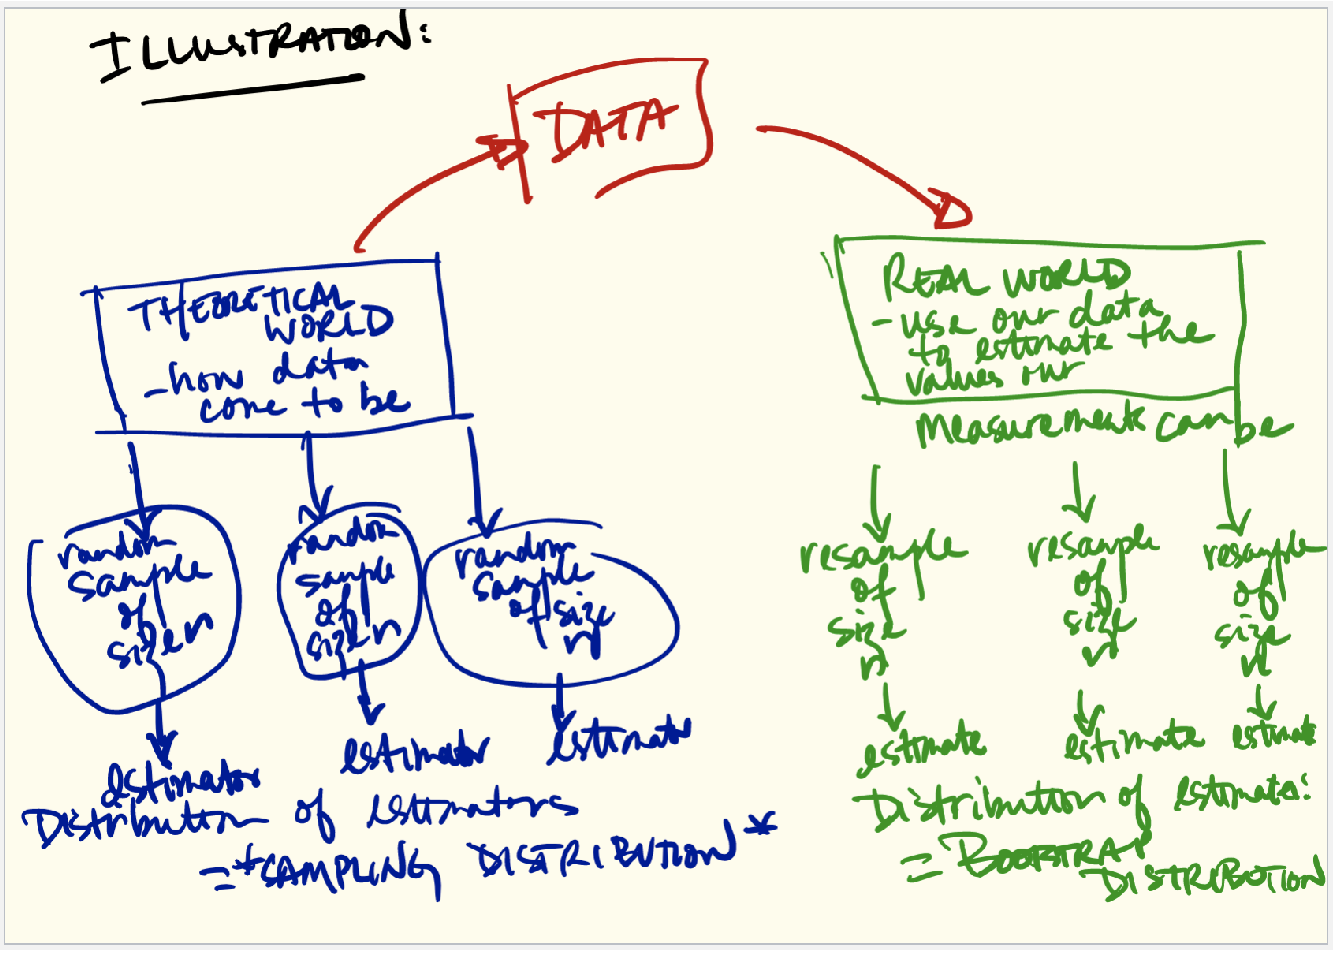 ILLUSTRATION:
DATA
THEORETICAL
WORLD
- how data
come to be
random
sample
of
size n
random
sample
of
size n
random
sample
of size
n
estimator
estimator
estimator
Distribution of estimators
= *SAMPLING DISTRIBUTION*
REAL WORLD
- use our data
to estimate the
values our
measurements can be
resample
of
size
n
resample
of
size
n
resample
of
size
n
estimate
estimate
estimate
Distribution of estimate:
= BOOTSTRAP
DISTRIBUTION